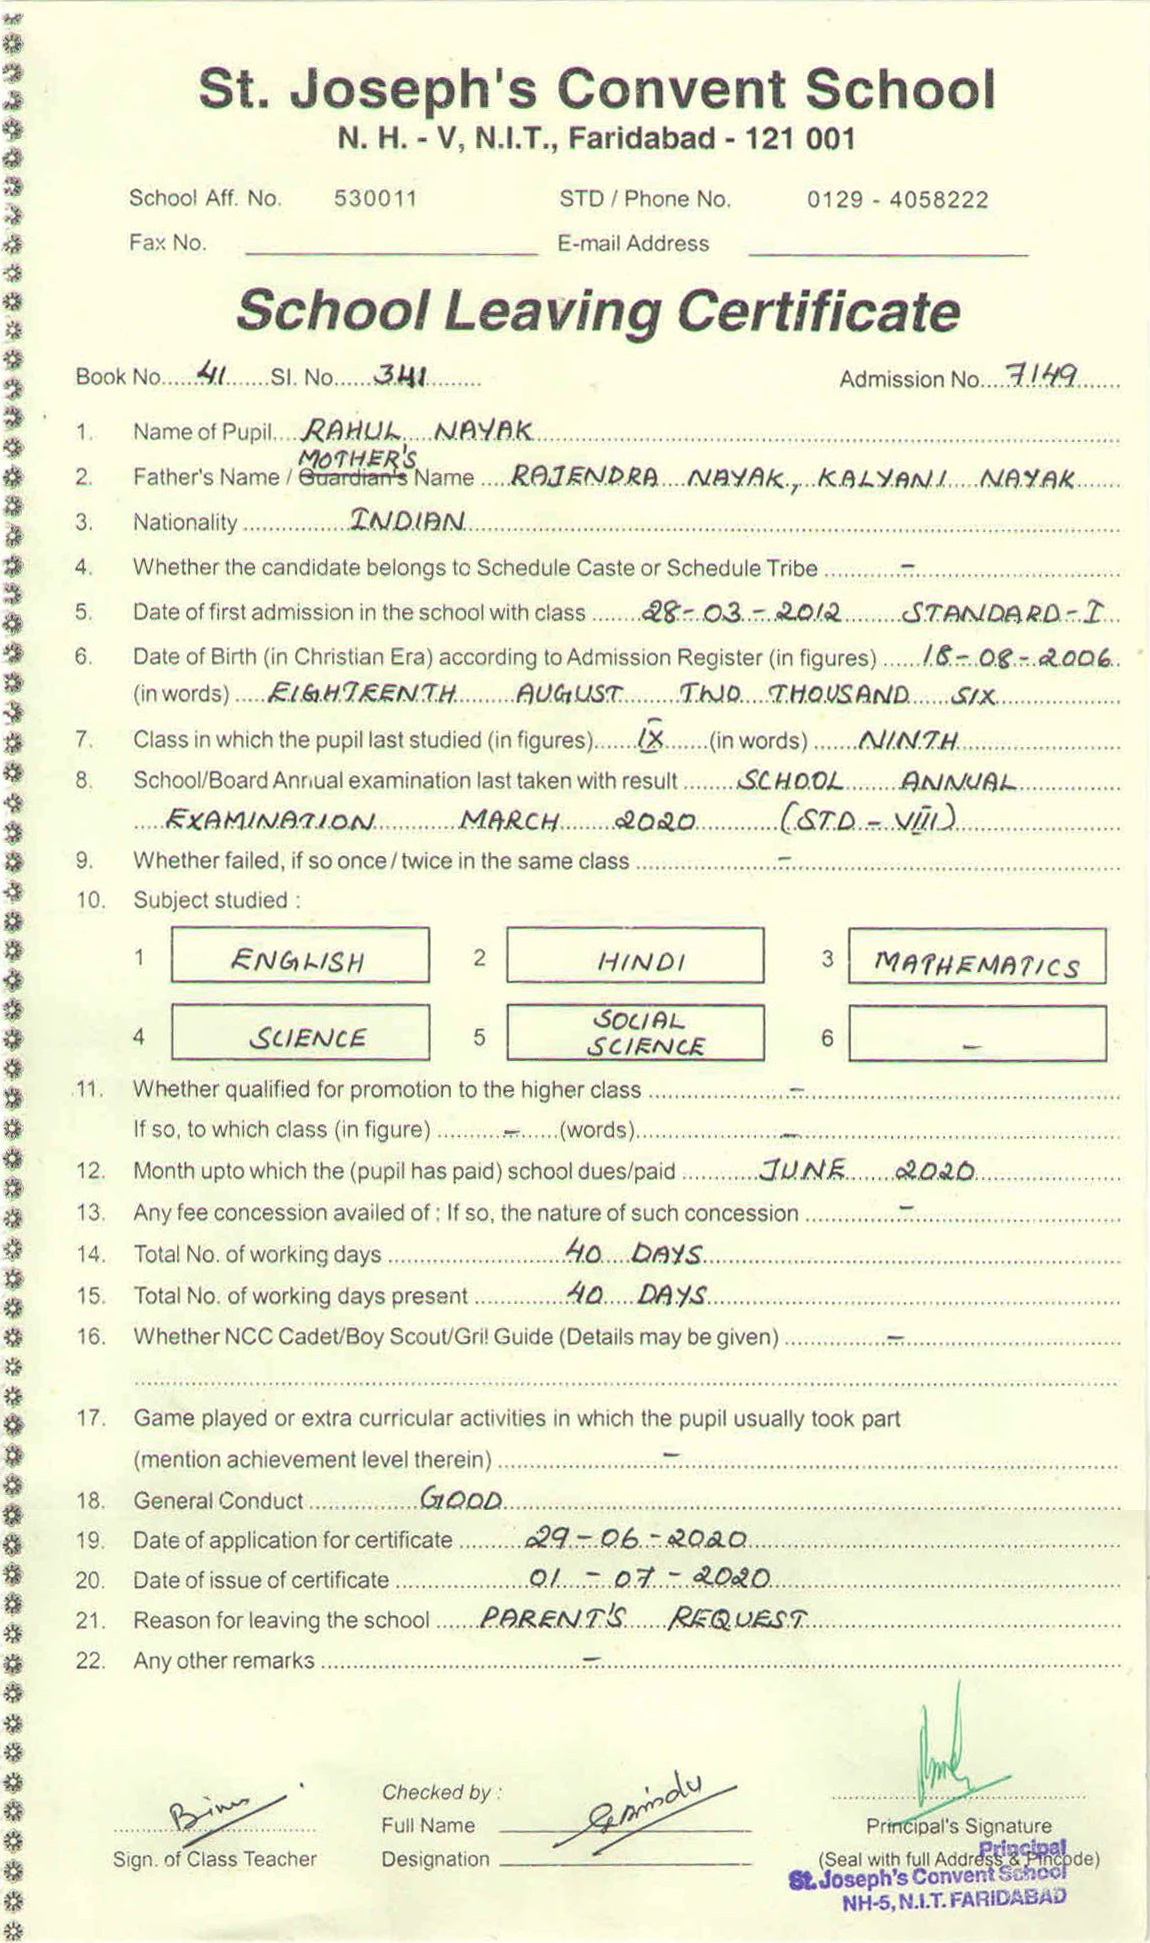 St. Joseph's Convent School
N. H. - V, N.I.T., Faridabad - 121 001
School Aff. No. 530011 STD / Phone No. 0129 - 4058222
Fax No. E-mail Address
School Leaving Certificate
Book No. 41 Sl. No. 341 Admission No. 7149
1. Name of Pupil RAHUL NAYAK
MOTHER'S
2. Father's Name / Guardian's Name RAJENDRA NAYAK, KALYANI NAYAK
3. Nationality INDIAN
4. Whether the candidate belongs to Schedule Caste or Schedule Tribe –
5. Date of first admission in the school with class 28-03-2012 STANDARD-I
6. Date of Birth (in Christian Era) according to Admission Register (in figures) 18-08-2006
(in words) EIGHTEENTH AUGUST TWO THOUSAND SIX
7. Class in which the pupil last studied (in figures) IX (in words) NINTH
8. School/Board Annual examination last taken with result SCHOOL ANNUAL
EXAMINATION MARCH 2020 (STD - VIII)
9. Whether failed, if so once / twice in the same class –
10. Subject studied :
1 ENGLISH 2 HINDI 3 MATHEMATICS
4 SCIENCE 5 SOCIAL SCIENCE 6 –
11. Whether qualified for promotion to the higher class –
If so, to which class (in figure) – (words) –
12. Month upto which the (pupil has paid) school dues/paid JUNE 2020
13. Any fee concession availed of : If so, the nature of such concession –
14. Total No. of working days 40 DAYS
15. Total No. of working days present 40 DAYS
16. Whether NCC Cadet/Boy Scout/Gril Guide (Details may be given) –
17. Game played or extra curricular activities in which the pupil usually took part
(mention achievement level therein) –
18. General Conduct GOOD
19. Date of application for certificate 29-06-2020
20. Date of issue of certificate 01-07-2020
21. Reason for leaving the school PARENT'S REQUEST
22. Any other remarks –
Checked by :
Full Name
Principal's Signature
Sign. of Class Teacher Designation (Seal with full Address & Pincode)
Principal
St. Joseph's Convent School
NH-5, N.I.T. FARIDABAD